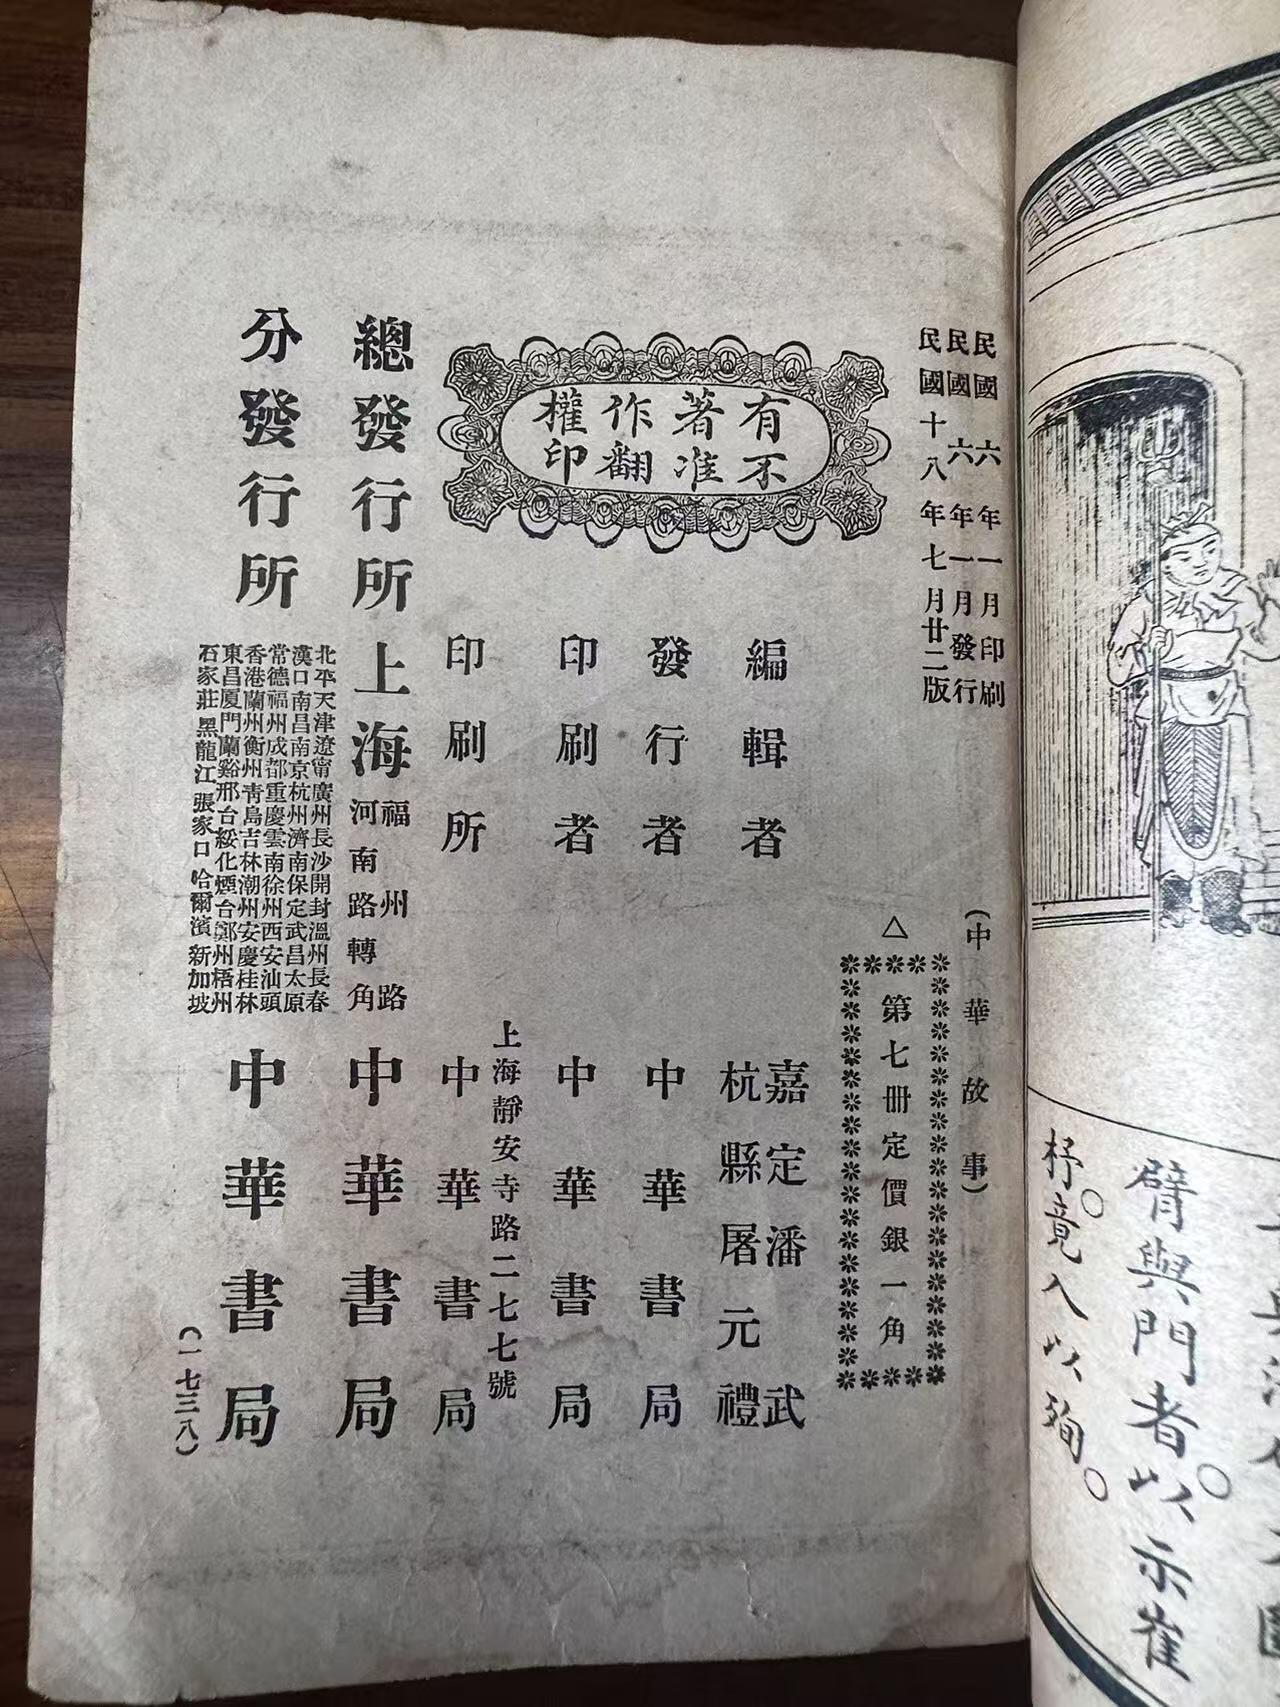 臂與門者。以示崔
杼。竟入以殉。
民國六年一月印刷
民國六年一月發行
民國十八年七月廿二版
(中華故事)
△第七册定價銀一角
有著作權
不准翻印
編輯者
嘉定潘武
杭縣屠元禮
發行者 中華書局
印刷者 中華書局
上海靜安寺路二七七號
印刷所 中華書局
總發行所 上海
福州路
河南路轉角
中華書局
分發行所
北平天津遼甯廣州長沙開封溫州長春
漢口南昌南京杭州濟南保定武昌太原
常德福州成都重慶雲南徐州西安汕頭
香港蘭州衡州靑島吉林潮州安慶桂林
東昌厦門蘭谿邢台綏化煙台鄭州梧州
石家莊黑龍江張家口哈爾濱新加坡
中華書局
(一七三八)